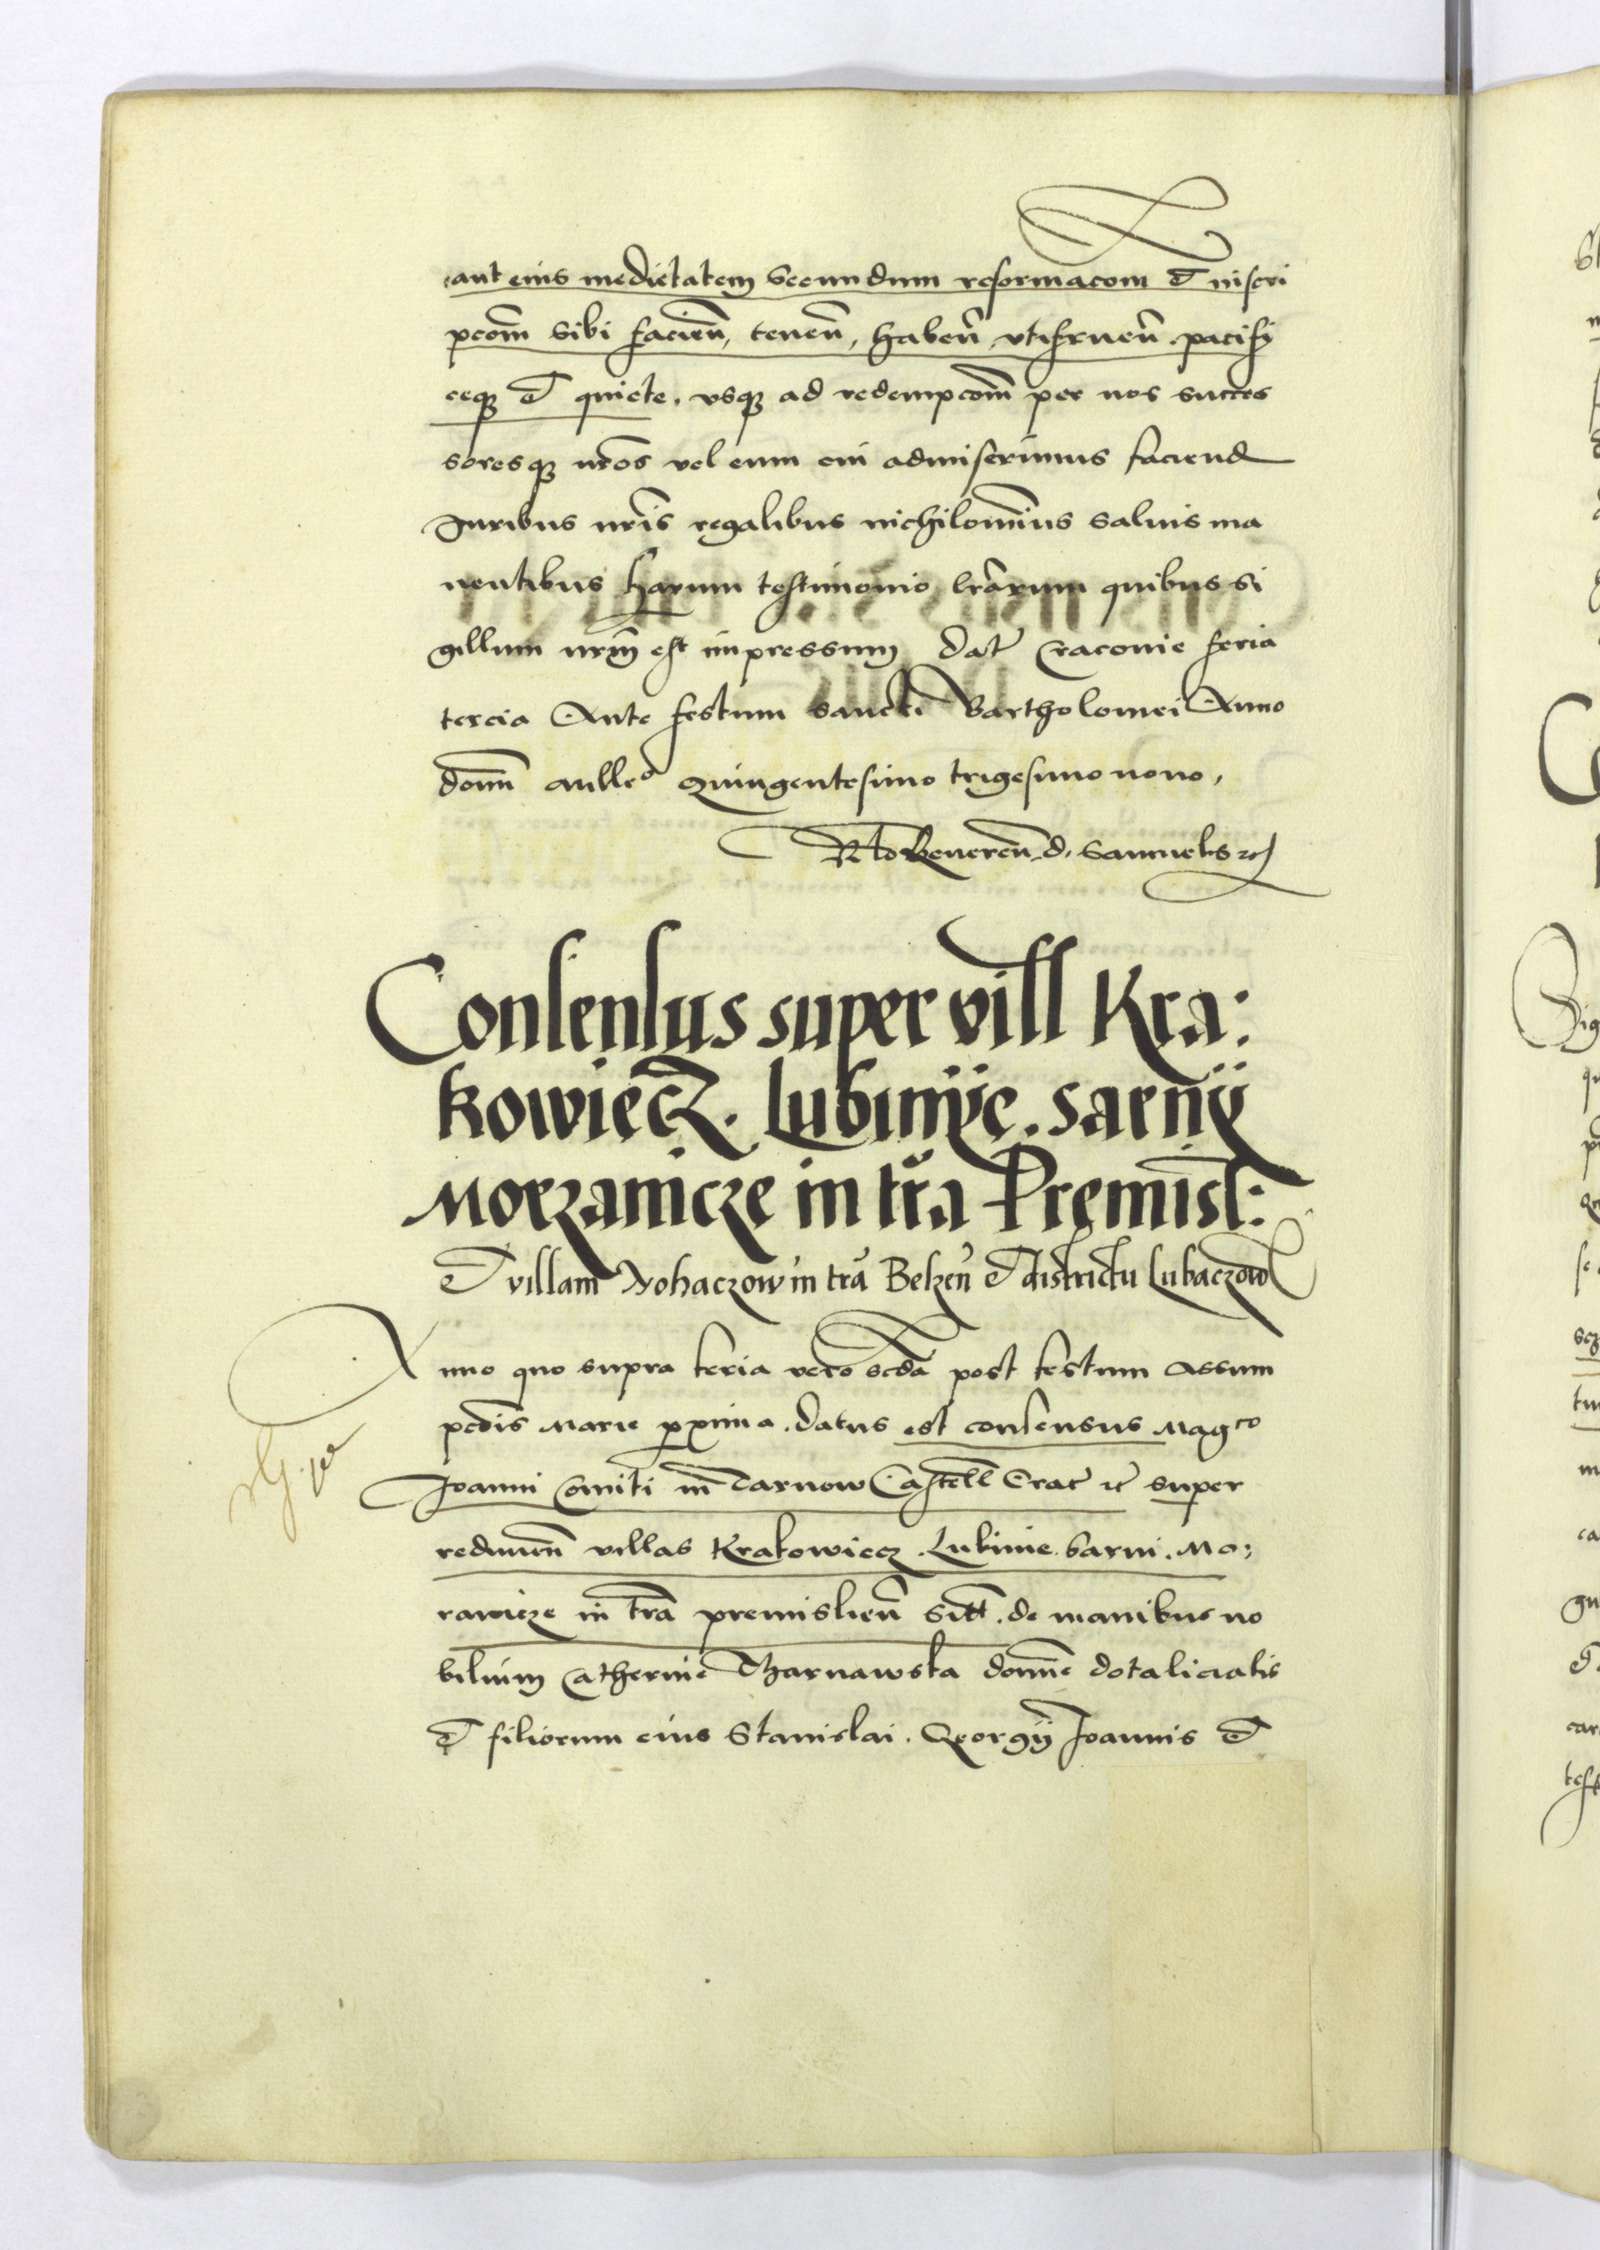 aut eius medietatem secundum reformacom et inscri
pcom sibi facien, tenen, haben utifruen pacifi
ceq et quiete, usq ad redempcom per nos succes
soresq nros vel eum cui admiserimus faciend
Juribus nris regalibus nichilominus salvis ma
nentibus harum testimonio lrarum quibus si
gillum nrm est impressum Dat Cracovie feria
tercia Ante festum sancti Bartholomei Anno
domi mille° Quingentesimo trigesimo nono,
Rlo Reveren d. Samuelis
Consensus super vill Kra:
kowiecz. Lubinije. sarnij
Morzanicze in tra Premisl:
et villam Rohaczow in tra Belzen et districtu Lubaczow
Anno quo supra feria vero scda post festum Assum
pcois Marie pxima. datus est consensus Magco
Joanni Comiti in Tarnow Castell Crac super
redimen villas Krakowiecz. Lubinie. Sarni. Mo:
rawicze in tra premislien sitt. de manibus no
bilium Catherine Tharnawska domne dotalicialis
et filiorum eius Stanislai. Georgij Joannis et